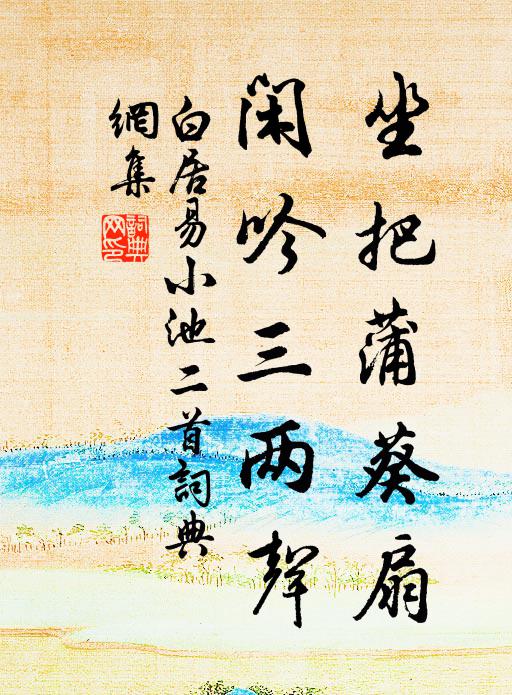 坐把蒲葵扇
闲吟三两聲
白居易小池二首詞典
網集
詞典网印